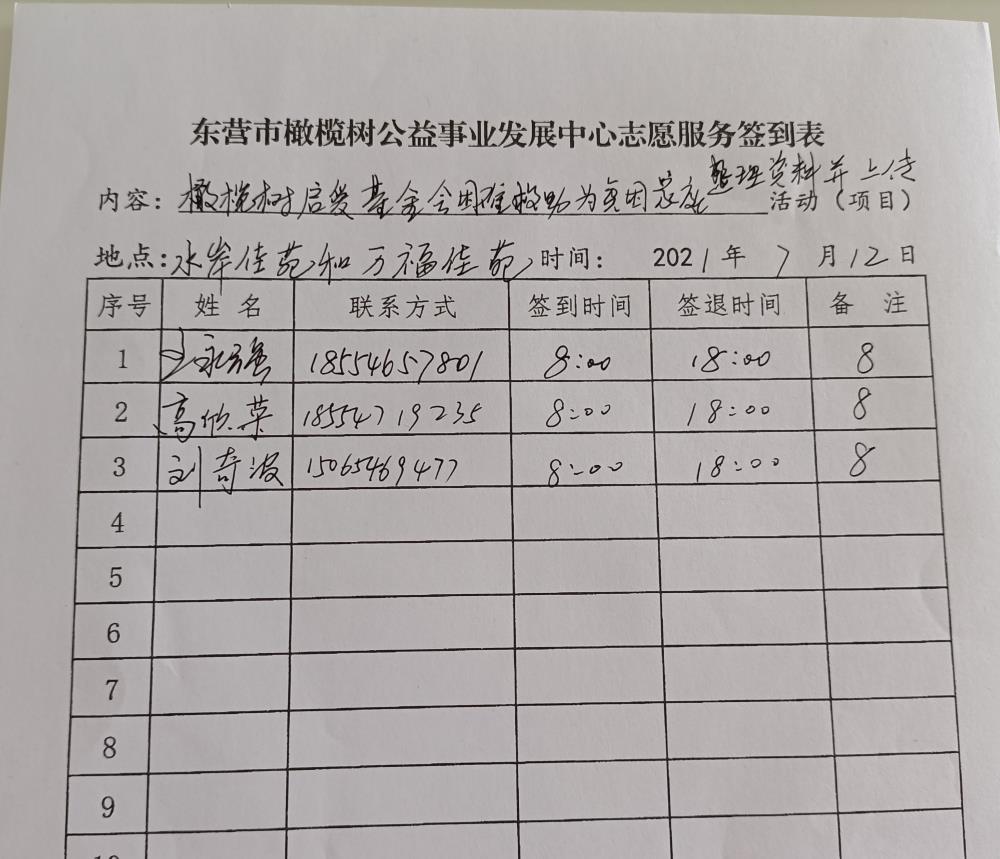 东营市橄榄树公益事业发展中心志愿服务签到表
整理资料并上传
内容：橄榄树启爱基金会困难救助为贫困家庭活动（项目）
地点：水岸佳苑和万福佳苑时间： 2021年 7 月12日
序号 姓 名 联系方式 签到时间 签退时间 备 注
1 王永强 18554657801 8:00 18:00 8
2 高欣荣 18554719235 8:00 18:00 8
3 刘奇波 15065469477 8:00 18:00 8
4
5
6
7
8
9
10